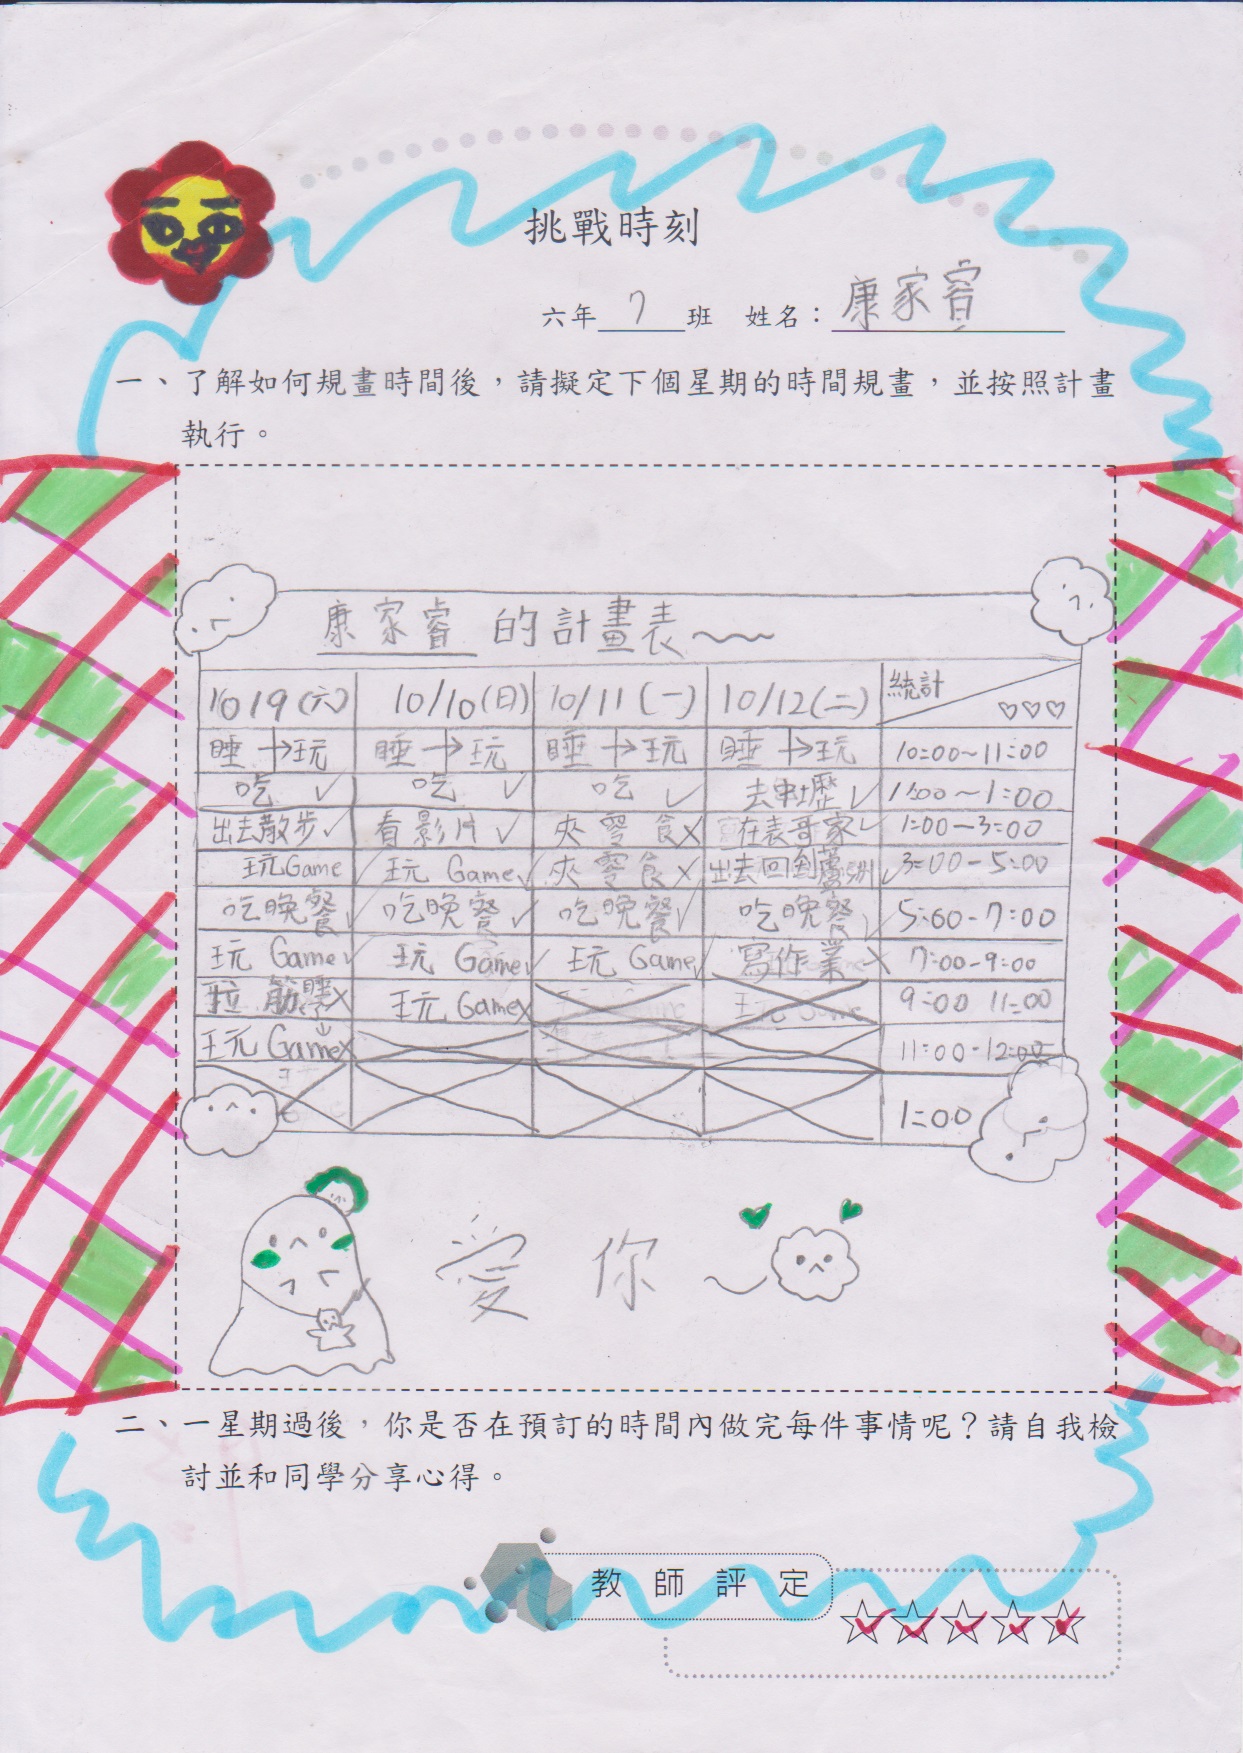 挑戰時刻
六年 7 班 姓名：康家睿
一、了解如何規畫時間後，請擬定下個星期的時間規畫，並按照計畫
執行。
康家睿 的計畫表～～
10/9(六) 10/10(日) 10/11(一) 10/12(二) 統計 ♡♡♡
睡→玩 睡→玩 睡→玩 睡→玩 10:00~11:00
吃 ✓ 吃 ✓ 吃 ✓ 去中壢 ✓ 11:00~1:00
出去散步 ✓ 看影片 ✓ 夾零食 X 在表哥家 ✓ 1:00-3:00
玩Game ✓ 玩 Game ✓ 夾零食 X 出去回到蘆洲 ✓ 3:00-5:00
吃晚餐 ✓ 吃晚餐 ✓ 吃晚餐 ✓ 吃晚餐 ✓ 5:00-7:00
玩 Game ✓ 玩 Game ✓ 玩 Game ✓ 寫作業 X 7:00-9:00
拉筋 睡 X 玩 Game X 玩 Game 9:00 11:00
玩 Game X 11:00-12:00
1:00
愛 你
二、一星期過後，你是否在預訂的時間內做完每件事情呢？請自我檢
討並和同學分享心得。
教師評定